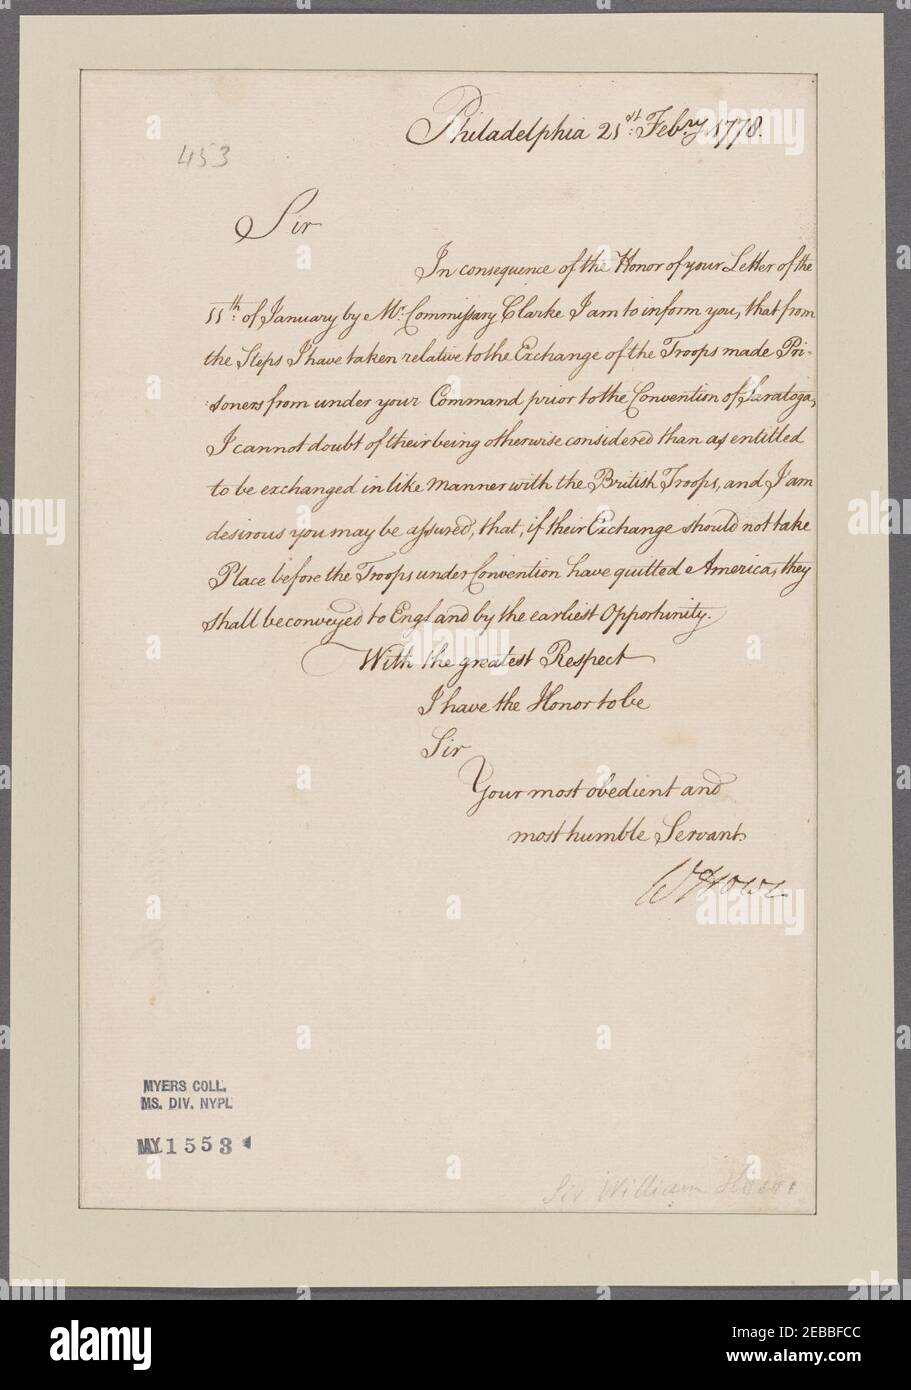 Philadelphia 21st: Febry. 1778.
453
Sir
In consequence of the Honor of your Letter of the
11th: of January by Mr. Commissary Clarke I am to inform you, that from
the Steps I have taken relative to the Exchange of the Troops made Pri-
:soners from under your Command prior to the Convention of Saratoga,
I cannot doubt of their being otherwise considered than as entitled
to be exchanged in like Manner with the British Troops, and I am
desirous you may be assured, that, if their Exchange should not take
Place before the Troops under Convention have quitted America, they
shall be conveyed to England by the earliest Opportunity.
With the greatest Respect
I have the Honor to be
Sir
Your most obedient and
most humble Servant
W Howe
MYERS COLL.
MS. DIV. NYPL
MY.1553
Sir William Howe
alamy
Image ID: 2EBBFCC
www.alamy.com